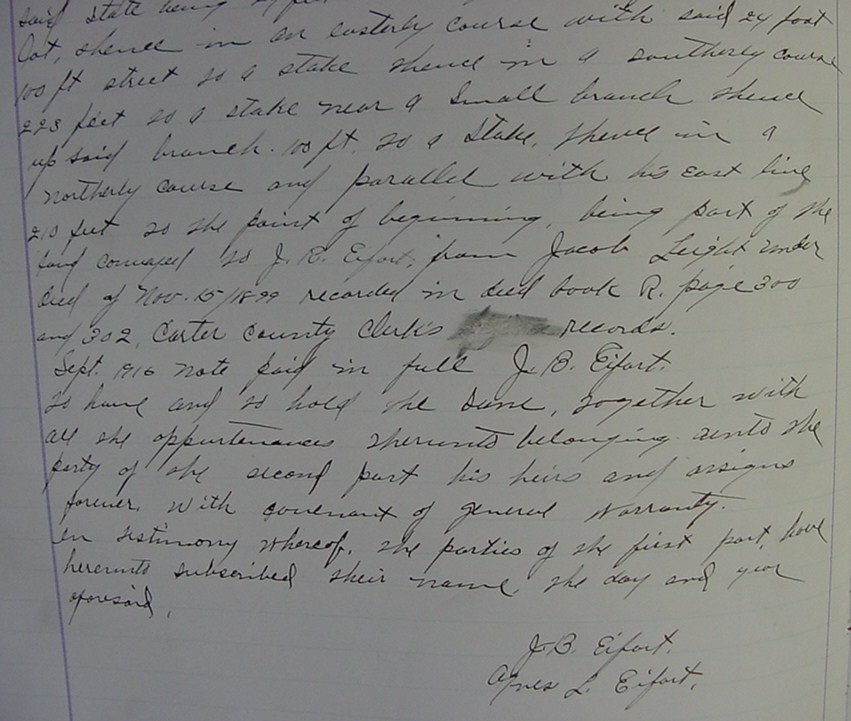 said stake being
lot, thence in an easterly course with said 24 foot
100 ft street to a stake thence in a southerly course
223 feet to a stake near a small branch thence
up said branch. 100 ft. to a stake, thence in a
northerly course and parallel with his east line
210 feet to the point of beginning, being part of the
land conveyed to J. B. Eifort, from Jacob Leight under
deed of Nov. 15/1899 recorded in deed book R. page 300
and 302, Carter County Clerk's records.
Sept. 1916 note paid in full J. B. Eifort.
To have and to hold the same, together with
all the appurtenances thereunto belonging unto the
party of the second part his heirs and assigns
forever, with covenant of general warranty.
In testimony whereof, the parties of the first part, have
hereunto subscribed their name, the day and year
aforesaid.
J. B. Eifort.
Agnes L. Eifort.